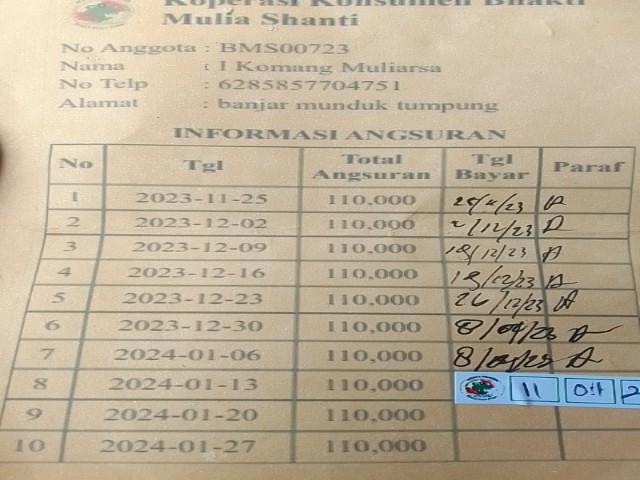 Koperasi Konsumen Bhakti
Mulia Shanti
No Anggota : BMS00723
Nama : I Komang Muliarsa
No Telp : 6285857704751
Alamat : banjar munduk tumpung
INFORMASI ANGSURAN
No Tgl Total Angsuran Tgl Bayar Paraf
1 2023-11-25 110,000
2 2023-12-02 110,000 2/12/23
3 2023-12-09 110,000
4 2023-12-16 110,000
5 2023-12-23 110,000 26/12/23
6 2023-12-30 110,000
7 2024-01-06 110,000
8 2024-01-13 110,000 11
9 2024-01-20 110,000
10 2024-01-27 110,000